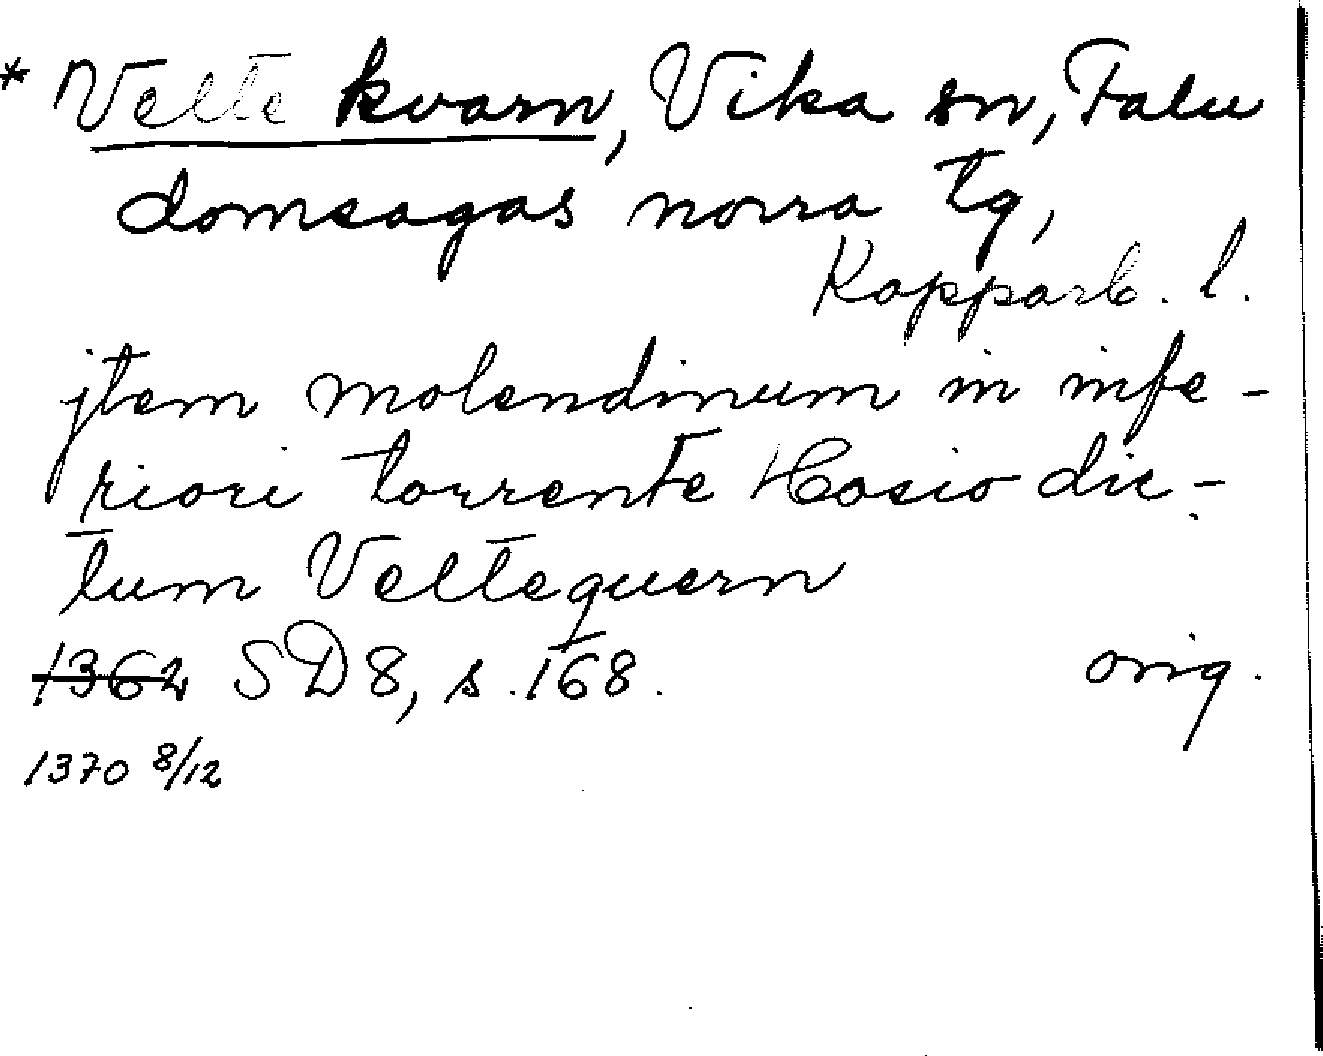 * Velte kvarn, Vika sn, Falu
domsagas norra tg,
Kopparb. l.
jtem molendinum in infe-
riori torrente Hosio dic-
tum Veltequern
1362 SD8, s. 168. orig.
1370 8/12